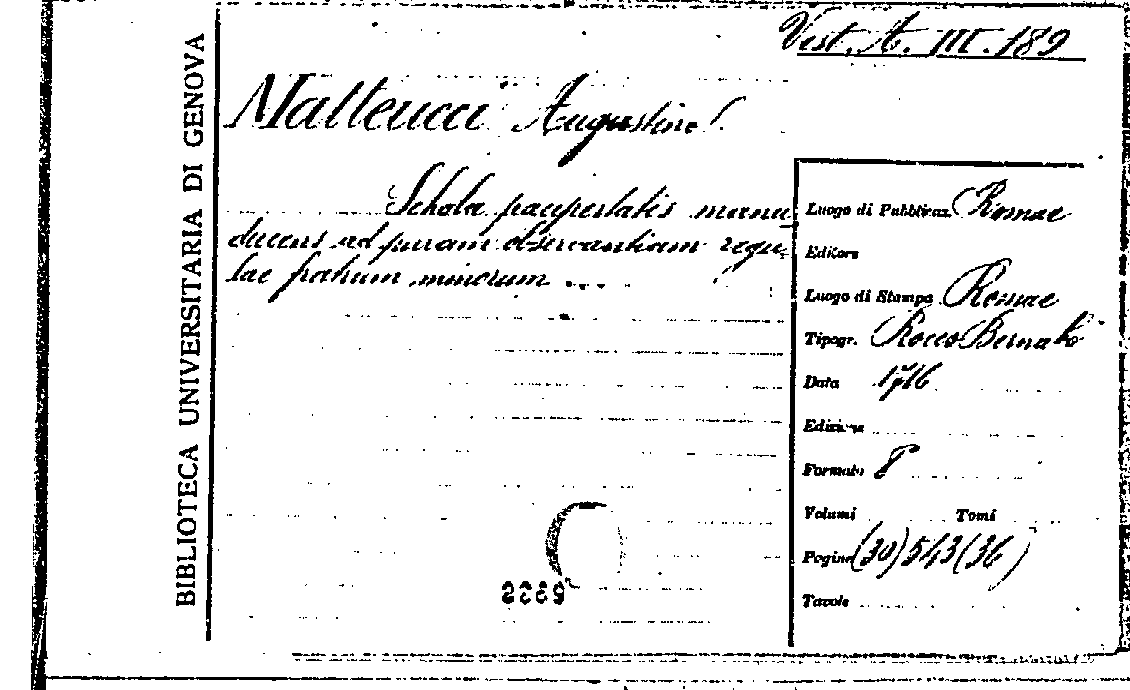 BIBLIOTECA UNIVERSITARIA DI GENOVA
Vest. A. III. 189
Matteucci Augustino
Schola paupertatis manu
ducens ad puram observantiam regu-
lae fratrum minorum ...
Luogo di Pubblicaz. Romae
Editore
Luogo di Stampa Romae
Tipogr. Rocco Bernabò
Data 1716
Edizione
Formato 8°
Volumi Tomi
Pagine (30) 543 (36)
Tavole